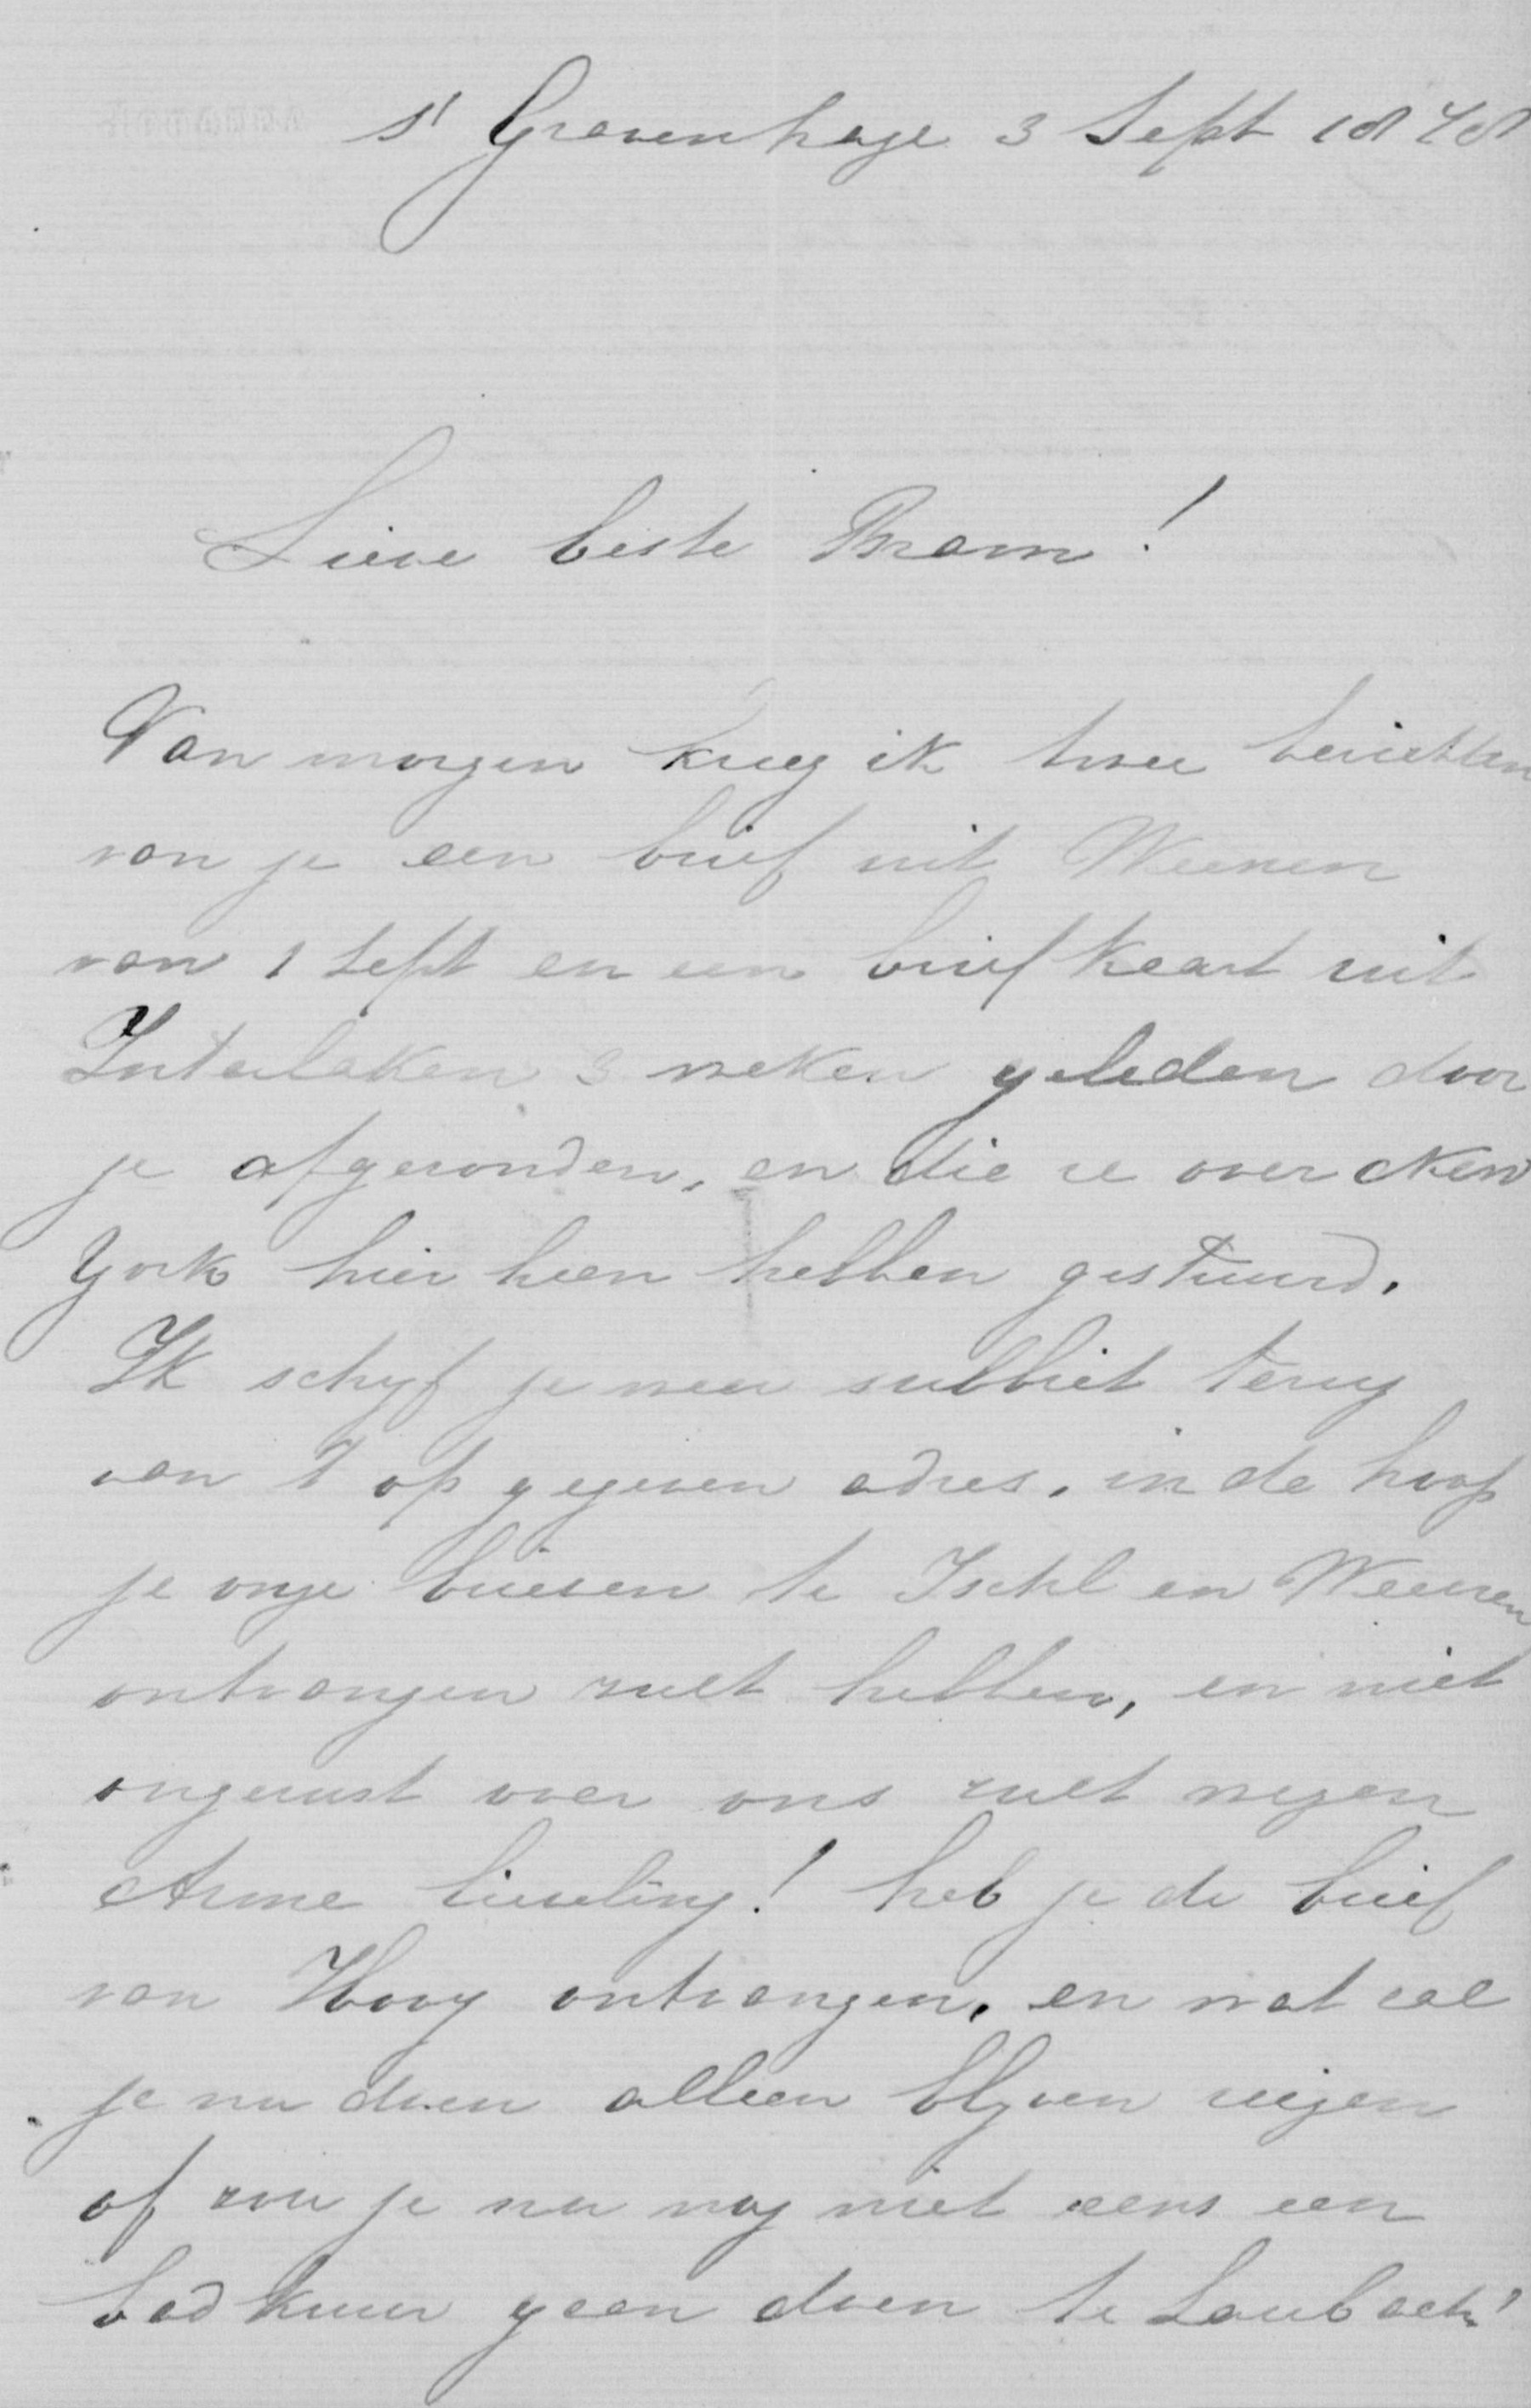 s' Gravenhage 3 Sept 1878
Lieve beste Bram!
Van morgen kreeg ik twee berichten
van je een brief uit Weenen
van 1 Sept en een briefkaart uit
Interlaken 3 weken geleden door
je afgezonden, en die ze over New
York hier heen hebben gestuurd.
Ik schryf je weer subbiet terug
aan 't op gegeven adres. in de hoop
je onze brieven te Ischl en Weenen
ontvangen zult hebben, en niet
ongerust over ons zult wezen
Arme lieveling! heb je de brief
van Hooy ontvangen. en wat zal
je nu doen alleen blyven reizen
of zou je nu nog niet eens een
badkuur gaan doen te Laubach?